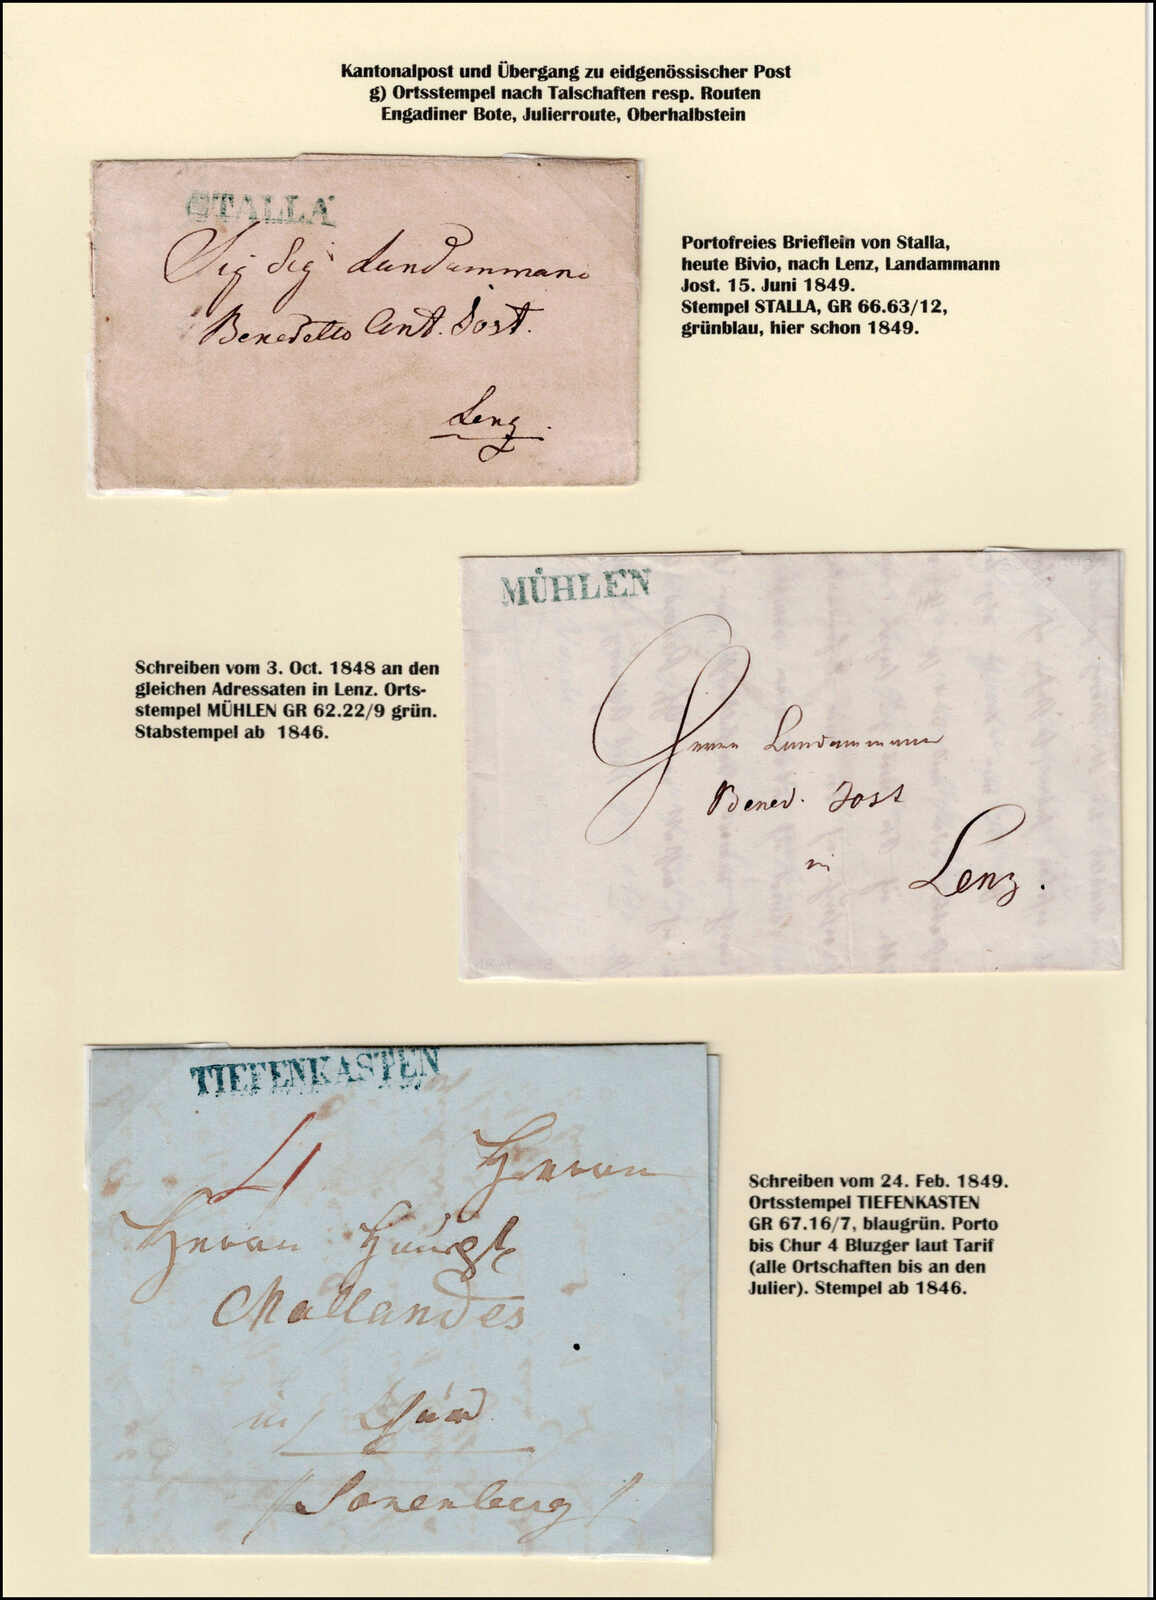 Kantonalpost und Übergang zu eidgenössischer Post
g) Ortsstempel nach Talschaften resp. Routen
Engadiner Bote, Julierroute, Oberhalbstein
STALLA
Sig Sig Landammano
Benedetto Ant. Jost.
Lenz.
Portofreies Brieflein von Stalla,
heute Bivio, nach Lenz, Landammann
Jost. 15. Juni 1849.
Stempel STALLA, GR 66.63/12,
grünblau, hier schon 1849.
MÜHLEN
Herrn Landammann
Bened. Jost
in
Lenz.
Schreiben vom 3. Oct. 1848 an den
gleichen Adressaten in Lenz. Orts-
stempel MÜHLEN GR 62.22/9 grün.
Stabstempel ab 1846.
TIEFENKASTEN
4
Herrn
Herrn
in Chur
Schreiben vom 24. Feb. 1849.
Ortsstempel TIEFENKASTEN
GR 67.16/7, blaugrün. Porto
bis Chur 4 Bluzger laut Tarif
(alle Ortschaften bis an den
Julier). Stempel ab 1846.